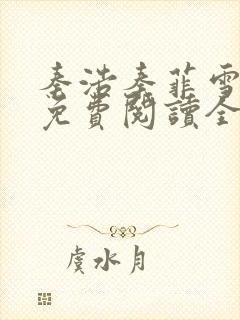 秦浩秦菲雪
免費閱讀全
虞水月